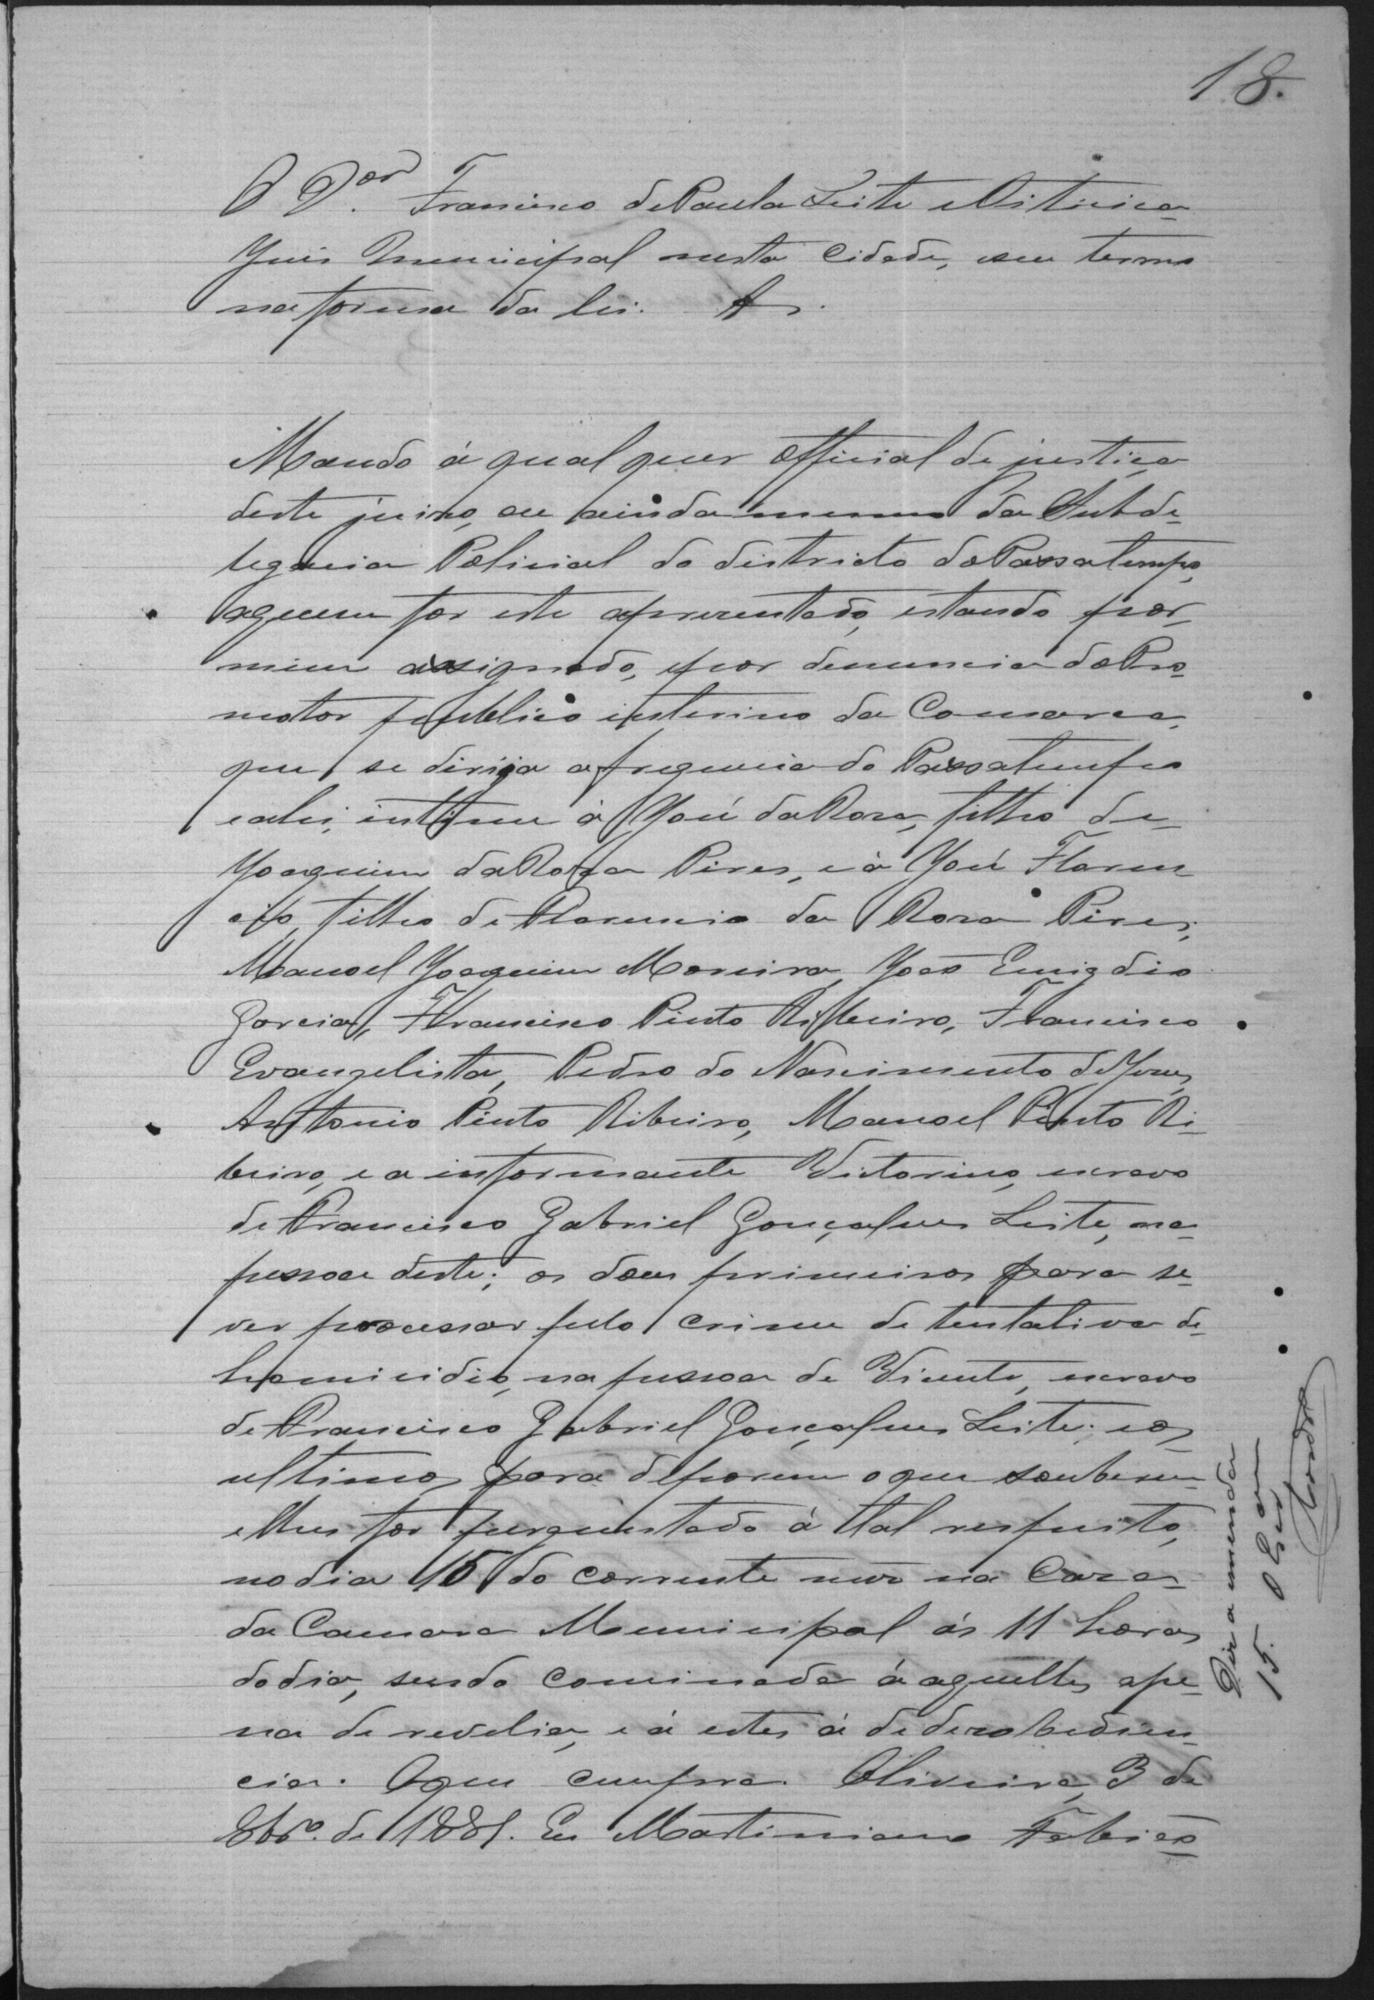 18.
O D.or Francisco de Paula Leite e Oiticica
Juis Municipal nesta Cidade, e seu termo
na forma da lei. &
Mando á qual quer Official de justiça
deste juiso, ou ainda mesmo da Subde-
legacia Policial do districto do Passatempo,
aquem for este apresentado, estando por
mim assignado, e por denuncia do Pro
motor publico interino da Comarca,
que se dirija a freguesia do Passatempo
e ahi, intime á José da Roza, filho de
Joaquim da Roza Pires, e á José Floren
cio, filho de Florencio da Roza Pires;
Manoel Joaquim Moreira, João Emigdio
Garcia, Francisco Pinto Ribeiro, Francisco
Evangelista, Pedro do Nascimento de Jesus,
Antonio Pinto Ribeiro, Manoel Pinto Ri-
beiro, e a informante Victorino, escravo
de Francisco Gabriel Gonçalves Leite, na
pessoa deste; os dous primeiros para se
ver processar pelo crime de tentativa de
homicidio, na pessoa de Vicente, escravo
de Francisco Gabriel Gonçalves Leite; e os
ultimos para deporem o que souberem
e lhes for perguntado á tal respeito,
no dia 15 do corrente mez na Caza
da Camara Municipal ás 11 horas
do dia, sendo cominada á aquelles a pe-
na de revelia, e á estes á de desobedien-
cia. O que cumpra. Oliveira, 3 de
8br.o de 1881. Eu Martiniano Fabião
Diz a emenda
15.